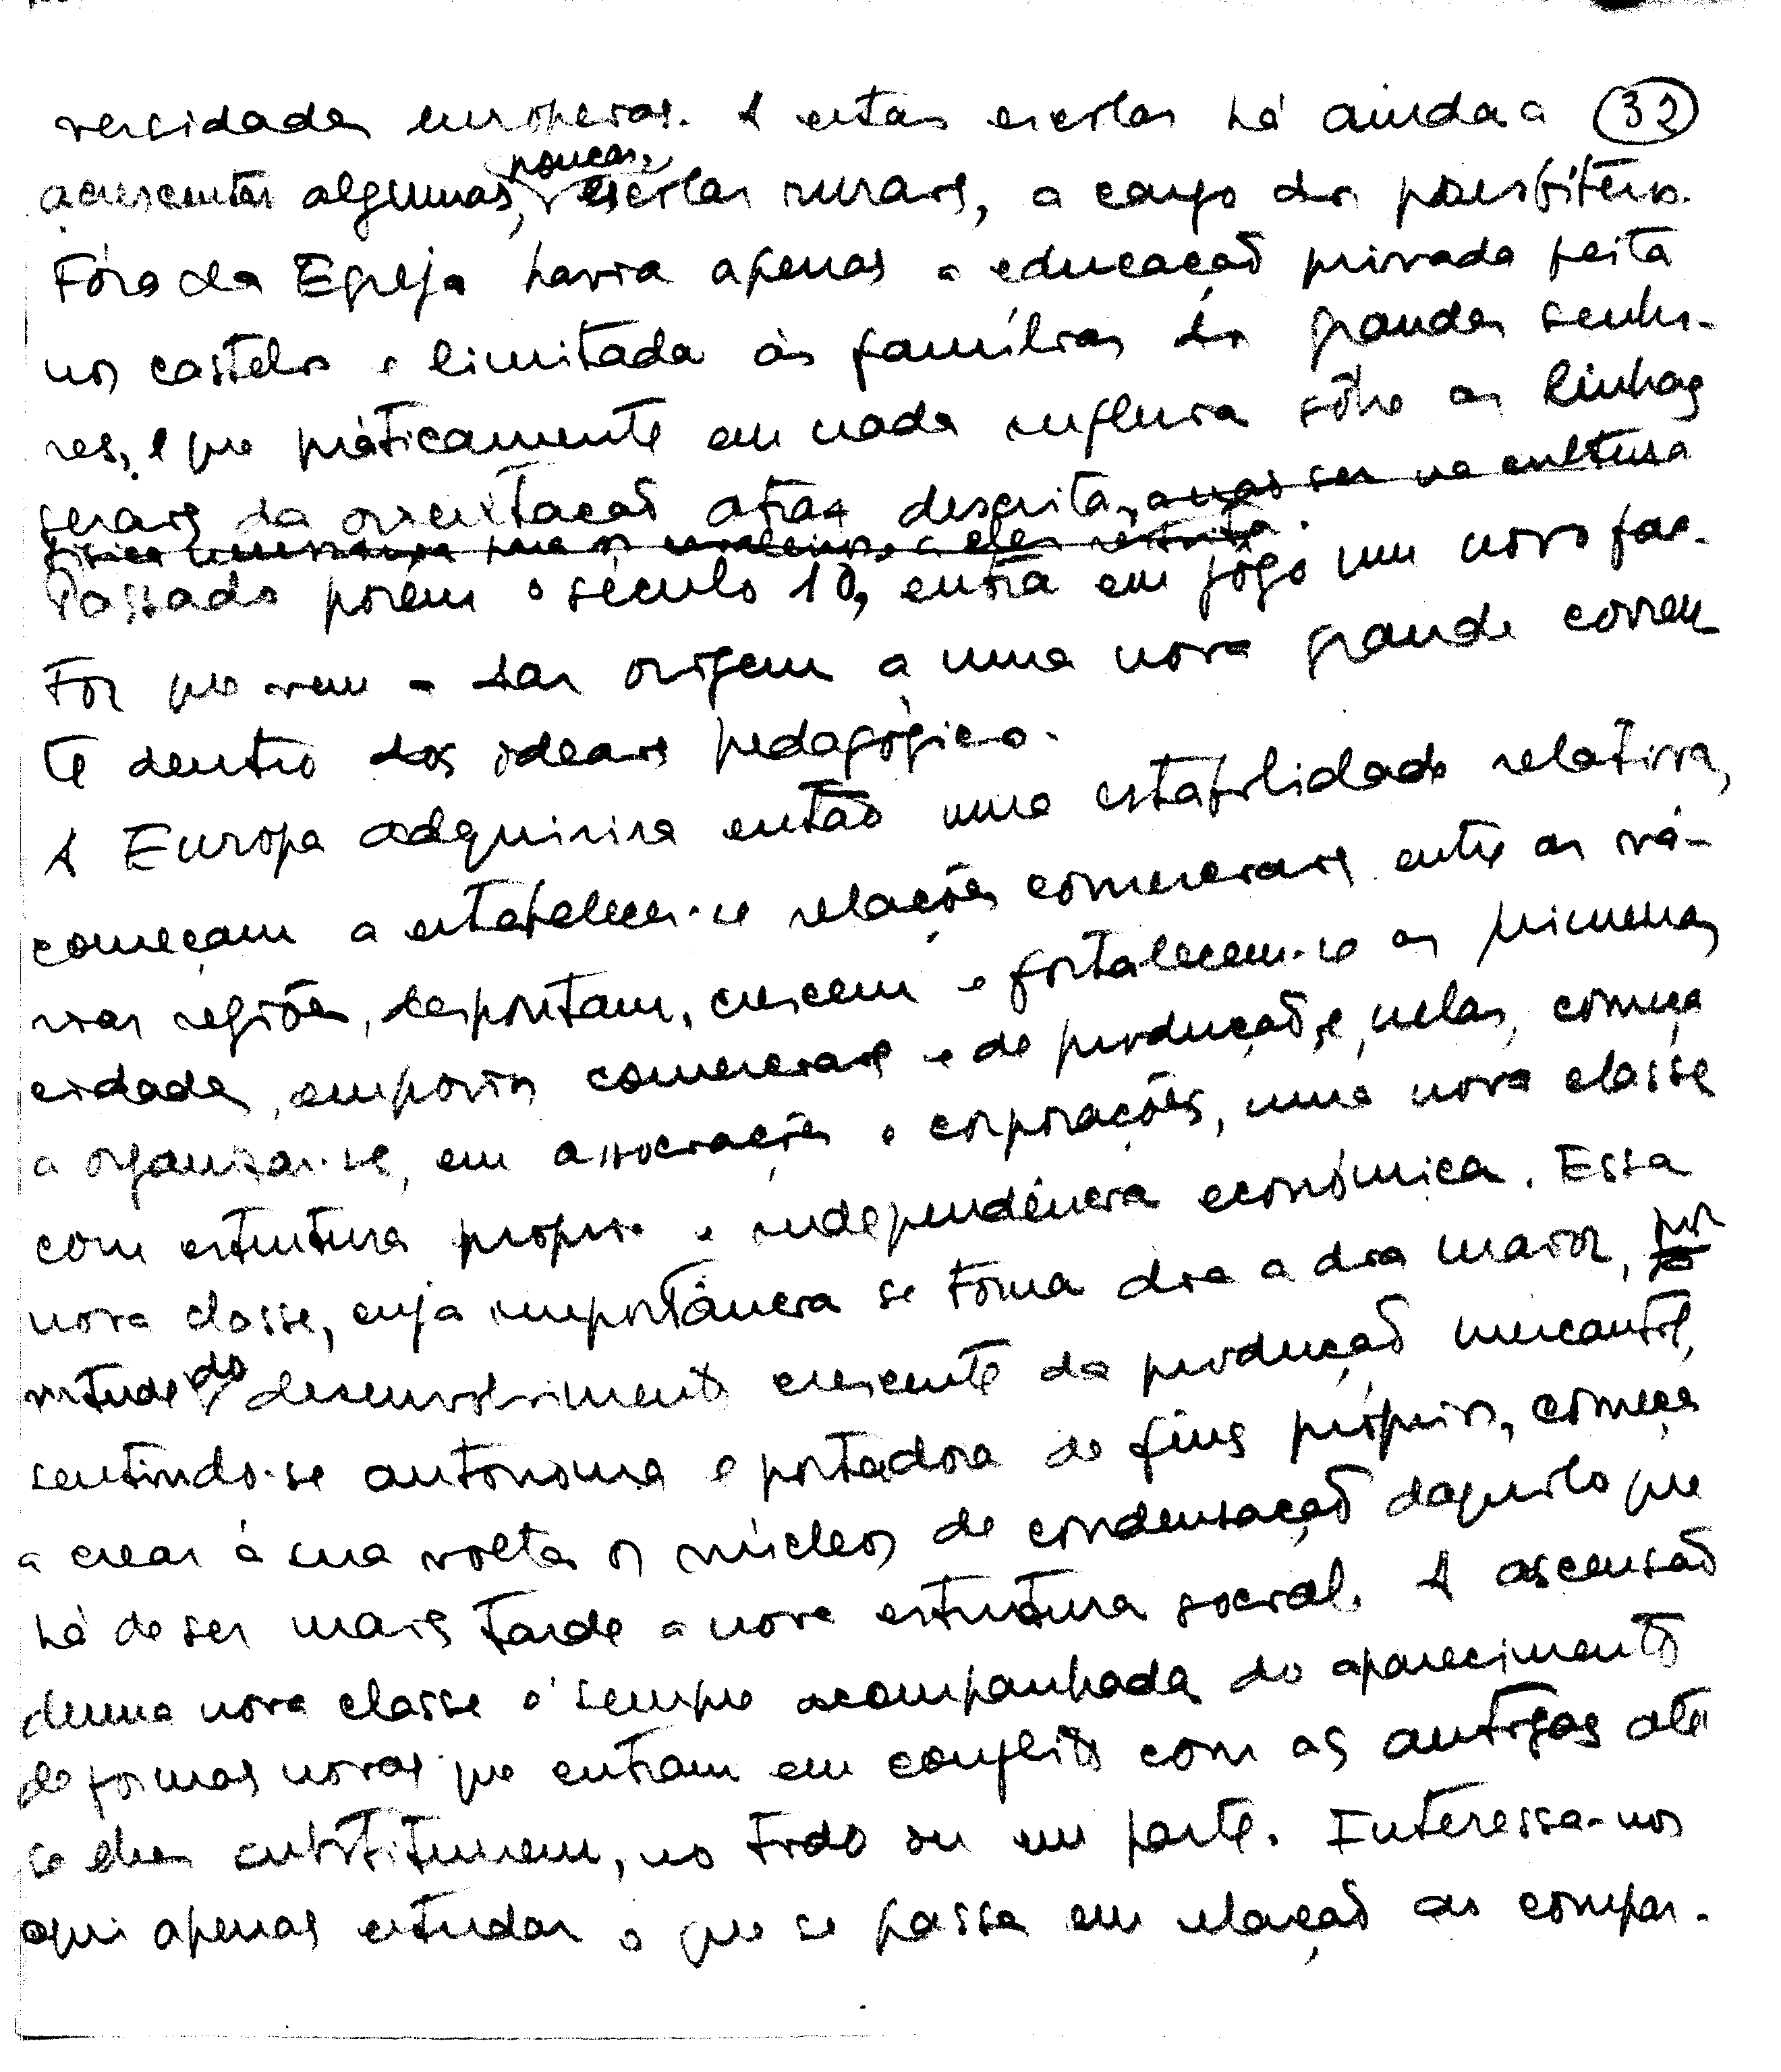 versidades europeias. A estas escolas há ainda a 32
acrescentar algumas, poucas, escolas rurais, a cargo dos presbíteros.
Fóra da Egreja havia apenas a educação privada feita
nos castelos e limitada às famílias dos grandes senho-
res, e que práticamente em nada influira sôbre as linhas
gerais da orientação atraz descrita, a não ser na cultura
física necessária para os
Passado porém o século 10, entra em jôgo um novo fac-
tor que vem a dar origem a uma nova grande corren
te dentro dos ideais pedagógicos.
A Europa adquirira então uma estabilidade relativa,
começam a estabelecer-se relações comerciais entre as vá-
rias regiões, despontam, crescem e fortalecem-se as primeiras
cidades, emporios comerciais e de produção, e, nelas, começa
a organizar-se, em associações e corporações, uma nova classe
com estrutura propria e independência económica. Essa
nova classe, cuja importância se torna dia a dia maior, por
virtude do desenvolvimento crescente da produção mercantil,
sentindo-se autonoma e portadora de fins próprios, começa
a crear à sua volta os núcleos de condensação daquilo que
há de ser mais tarde a nova estrutura social. A ascensão
duma nova classe é sempre acompanhada do aparecimento
de formas novas que entram em conflito com as antigas até
se elas substituirem, no todo ou em parte. Interessa-nos
aqui apenas estudar o que se passa em relação ao compar-